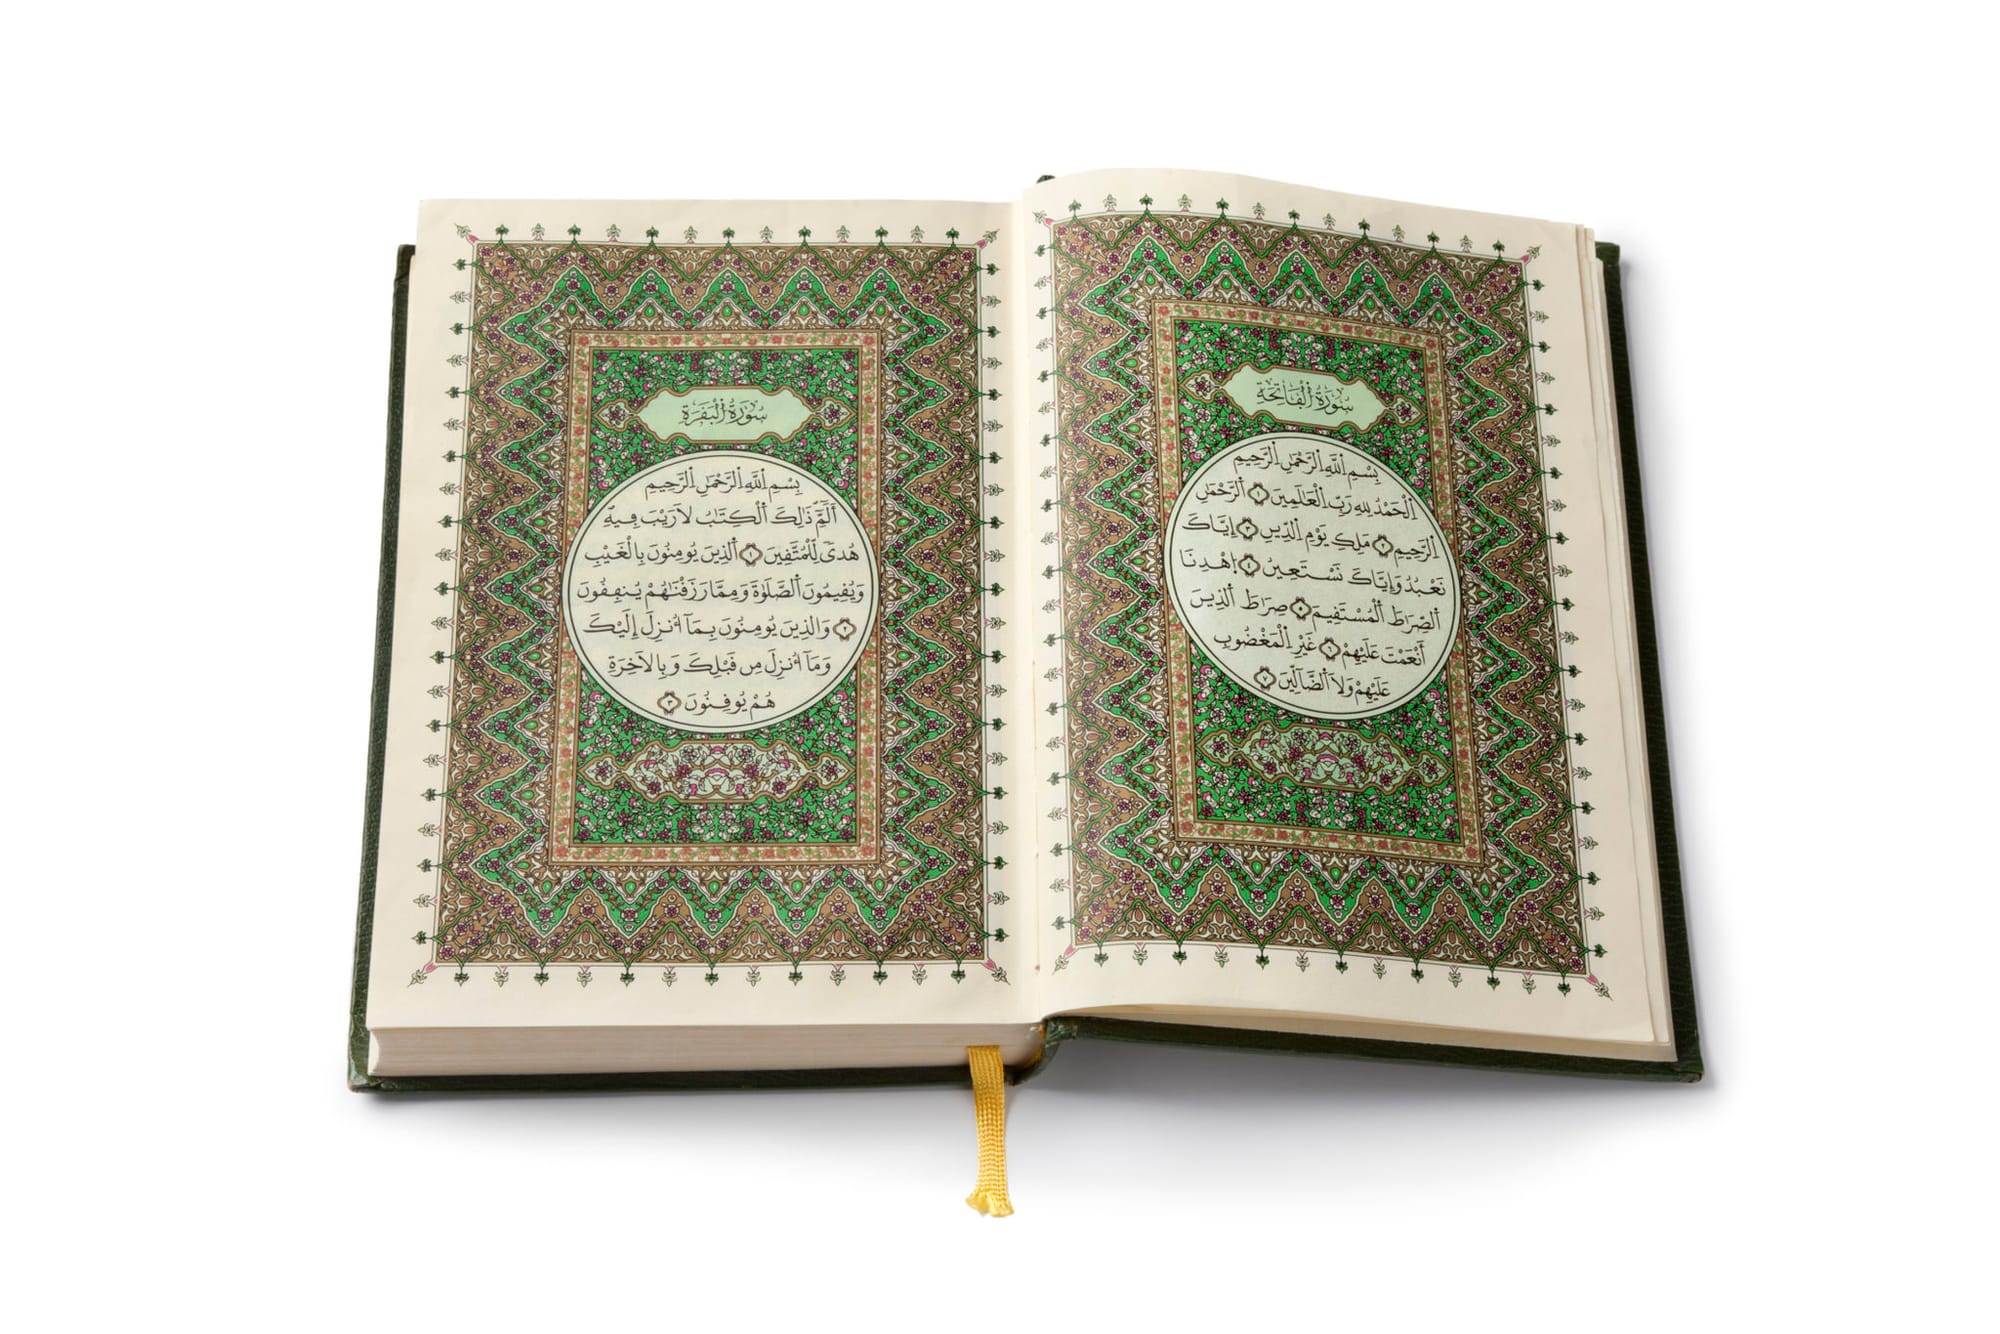 سُورَةُ الْفَاتِحَةِ
بِسْمِ اِللَّهِ اِلرَّحْمَٰنِ اِلرَّحِيمِ
اِلْحَمْدُ لِلهِ رَبِّ اِلْعَٰلَمِينَ ١ اَلرَّحْمَٰنِ
اِلرَّحِيمِ ٢ مَلِكِ يَوْمِ اِلدِّينِ ٣ إِيَّاكَ
نَعْبُدُ وَإِيَّاكَ نَسْتَعِينُ ٤ اِهْدِنَا
اَلصِّرَٰطَ اَلْمُسْتَقِيمَ ٥ صِرَٰطَ اَلذِينَ
أَنْعَمْتَ عَلَيْهِمْ ٦ غَيْرِ اِلْمَغْضُوبِ
عَلَيْهِمْ وَلَا اَلضَّآلِّينَ ٧
سُورَةُ الْبَقَرَةِ
بِسْمِ اِللَّهِ اِلرَّحْمَٰنِ اِلرَّحِيمِ
أَلَمِّٓ ذَٰلِكَ اَلْكِتَٰبُ لَا رَيْبَ فِيهِ
هُدىً لِّلْمُتَّقِينَ ١ اَلذِينَ يُومِنُونَ بِالْغَيْبِ
وَيُقِيمُونَ اَلصَّلَوٰةَ وَمِمَّا رَزَقْنَٰهُمْ يُنفِقُونَ
٢ وَالذِينَ يُومِنُونَ بِمَآ أُنزِلَ إِلَيْكَ
وَمَآ أُنزِلَ مِن قَبْلِكَ وَبِالَاخِرَةِ
هُمْ يُوقِنُونَ ٣